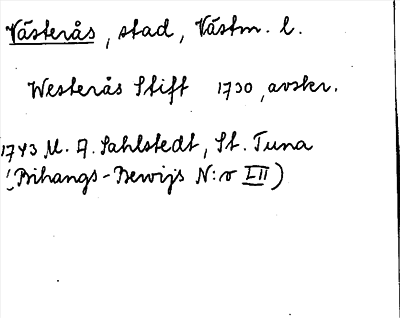 Västerås, stad, Västm. l.
Westerås Stift 1730, avskr.
1743 M. A. Sahlstedt, St. Tuna
(Bihangs-Bewijs N:o LII)